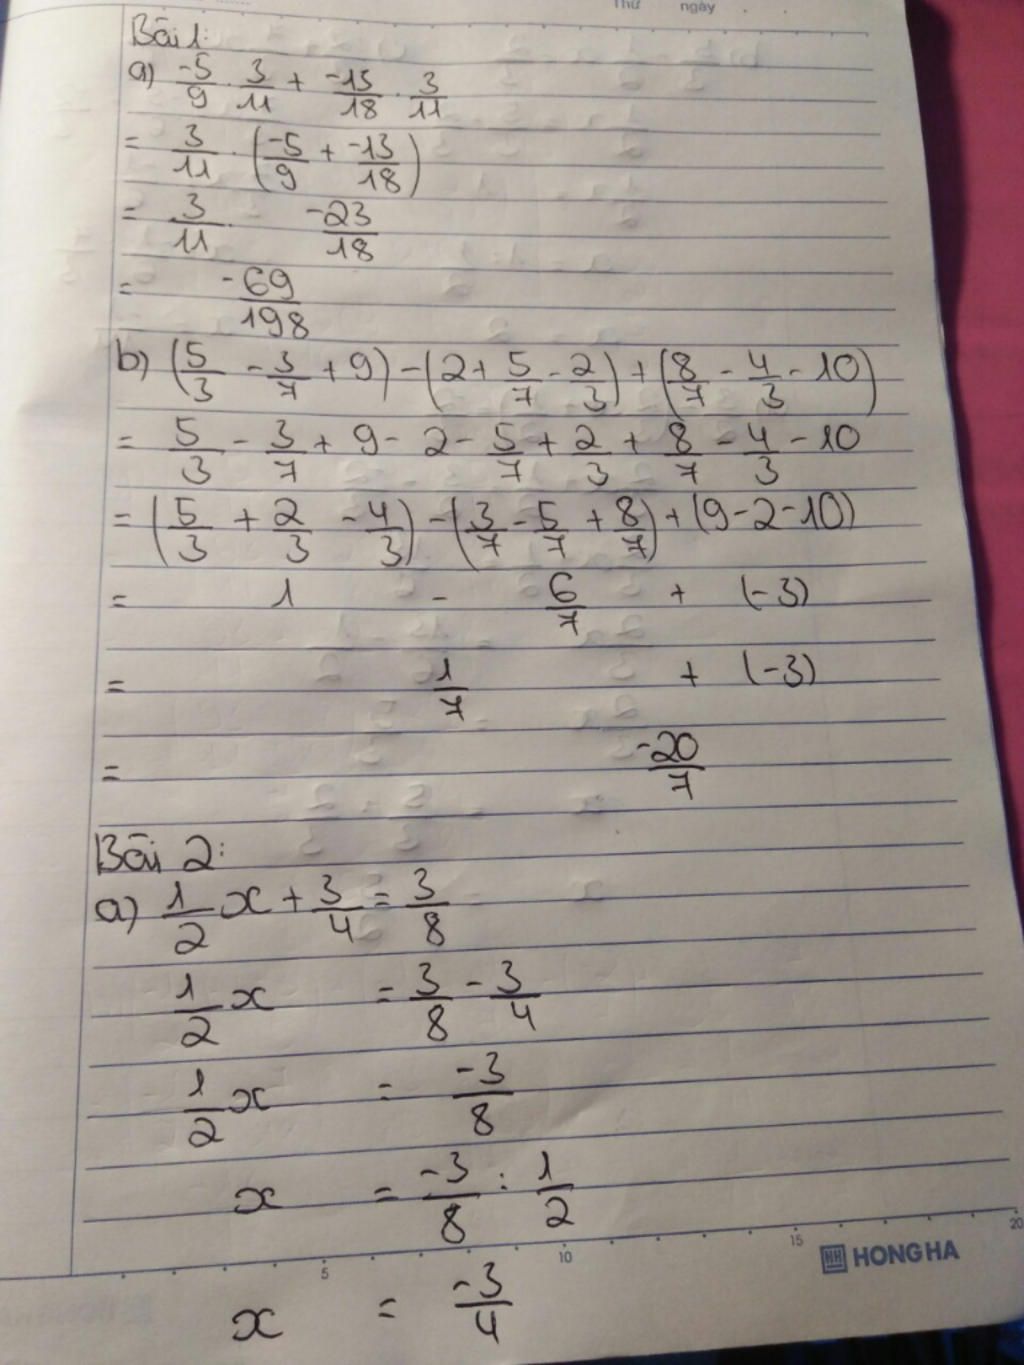 Thứ ngày
Bài 1:
a) -5/9 . 3/11 + -13/18 . 3/11
= 3/11 . (-5/9 + -13/18)
= 3/11 . -23/18
= -69/198
b) (5/3 - 3/7 + 9) - (2 + 5/7 - 2/3) + (8/7 - 4/3 - 10)
= 5/3 - 3/7 + 9 - 2 - 5/7 + 2/3 + 8/7 - 4/3 - 10
= (5/3 + 2/3 - 4/3) - (3/7 - 5/7 + 8/7) + (9 - 2 - 10)
= 1 - 6/7 + (-3)
= 1/7 + (-3)
= -20/7
Bài 2:
a) 1/2 x + 3/4 = 3/8
1/2 x = 3/8 - 3/4
1/2 x = -3/8
x = -3/8 : 1/2
5 10 15 20
HH HONG HA
x = -3/4